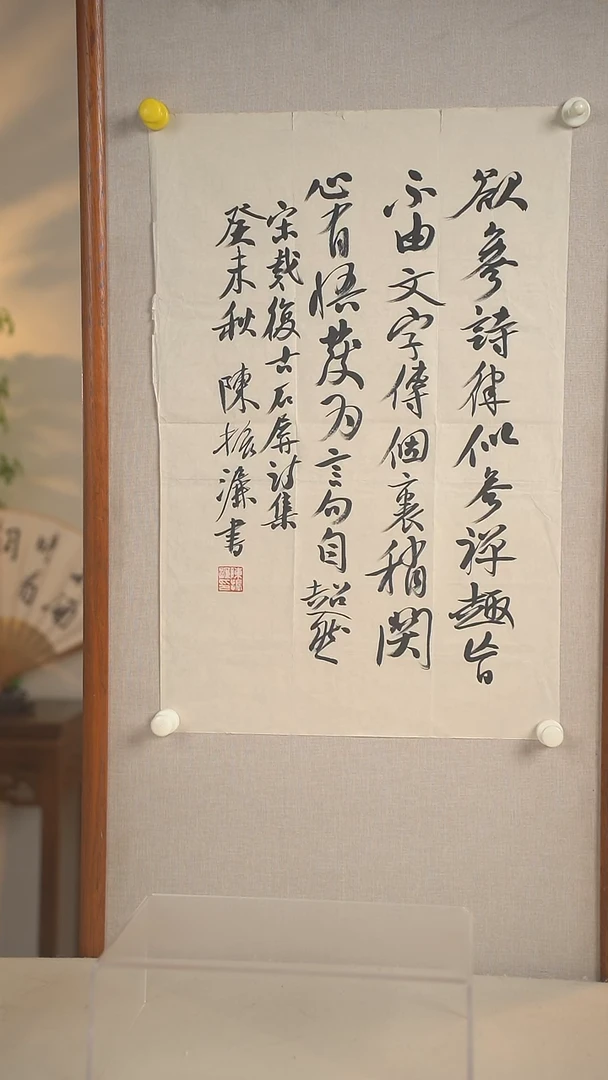 欲參詩律似参禅趣旨
不由文字傳個裏稍関
心有悟發为言句自超然
宋戴復古石屏詩集
癸未秋 陳振濂書